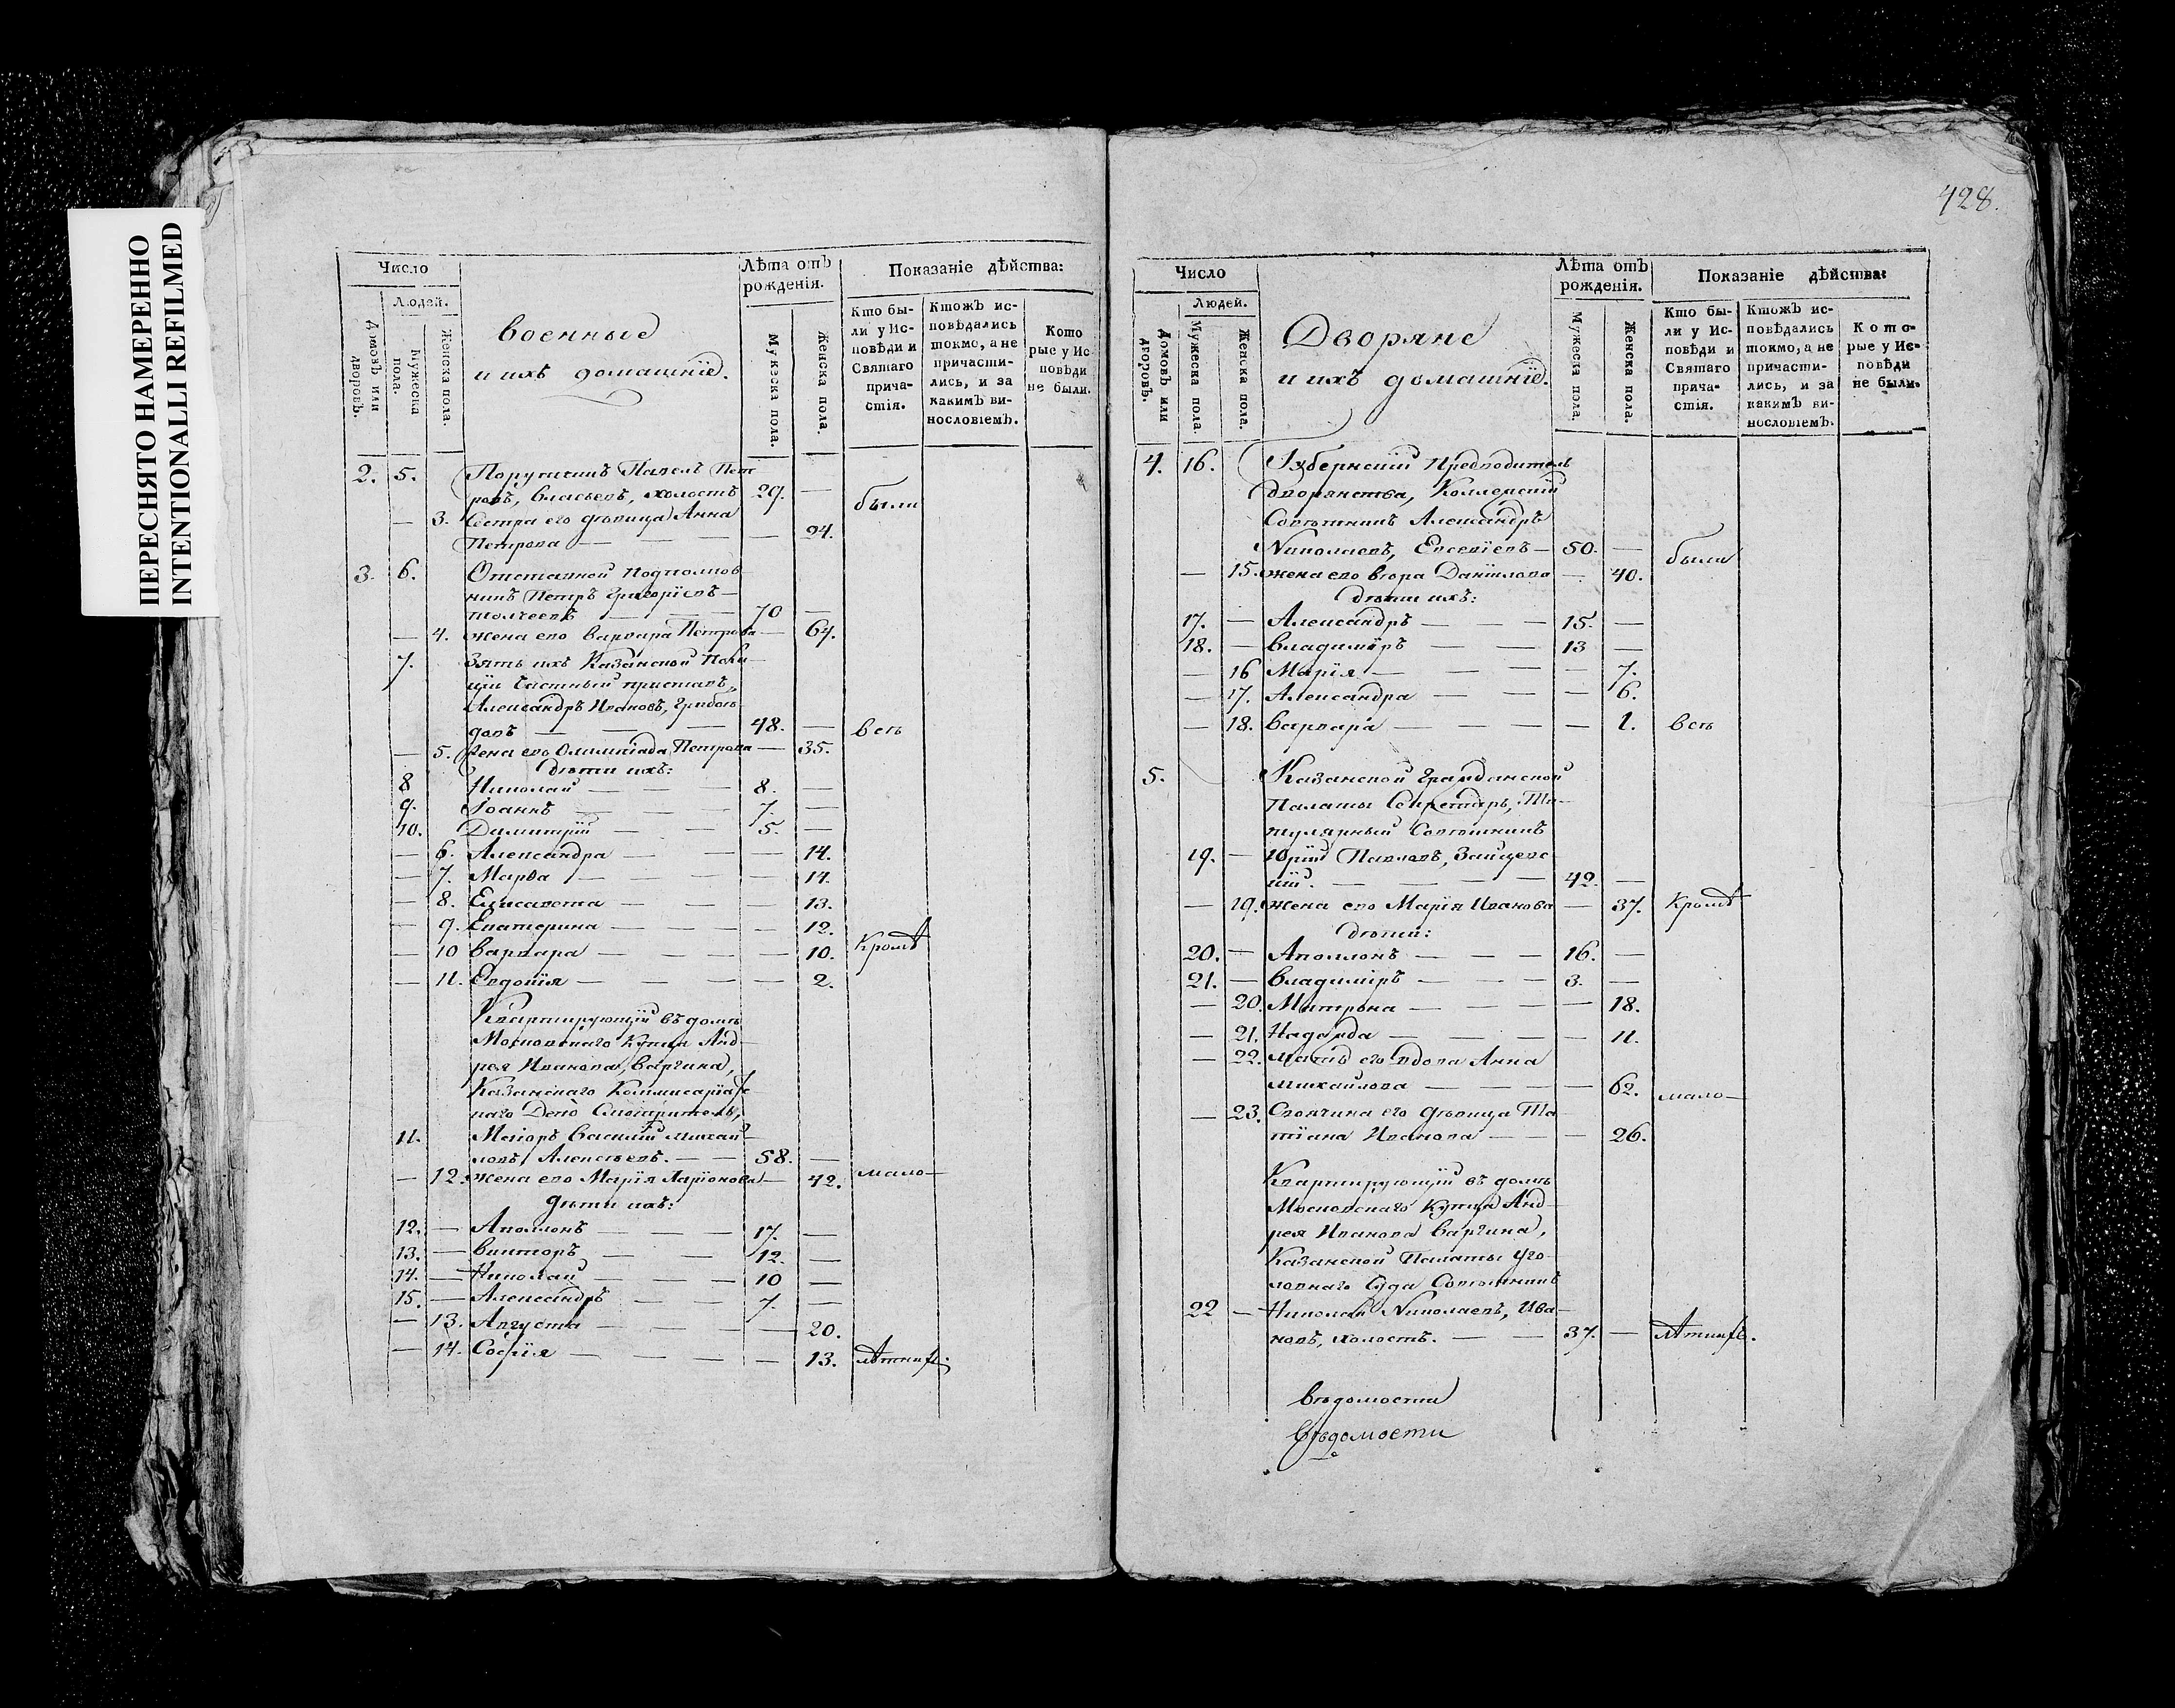 ПЕРЕСНЯТО НАМЕРЕННО
INTENTIONALLI REFILMED
Число
Людей.
Домовъ или дворовъ.
Мужеска пола.
Женска пола.
военные
и ихъ домашніе.
Лѣта отъ рожденія.
Мужеска пола.
Женска пола.
Показаніе дѣйства:
Кто были у Исповѣди и Святаго причастія.
Ктожъ исповѣдались токмо, а не причастились, и за какимъ винословіемъ.
Которые у Исповѣди не были.
2. 5. Поручикъ Павелъ Пет
ровъ, Власьевъ, холостъ 29. — были
— 3. Сестра его девица Анна
Петрова — — — — 24.
3. 6. Отставной подполков
никъ Петръ Григорьевъ —
— — 70 —
— 4. жена его Варвара Петрова — 64.
7. Зять ихъ Казанской Поли
ціи Частный приставъ,
Александръ Ивановъ,
— — 48. — всѣ
— 5. Жена его Олимпіада Петрова — 35.
дѣти ихъ:
8 Николай — — — 8. —
9. Іоаннъ — — 7. —
10. Димитрій — — 5. —
— 6. Александра — — — 14.
— 7. Марѳа — — — — 14.
— 8. Елисавета — — — 13.
— 9. Екатерина — — — — 12.
— 10 Варвара — — — — 10. Кромѣ
— 11. Евдокія — — — — 2.
Квартирующій въ домѣ
Московскаго Купца Анд
рея Иванова, Варгина,
Казанскаго Коммисаріат
наго Депо Смотритель,
11. Маіоръ Василій Михай
ловъ, Алексѣевъ. — — 58. —
— 12. жена его Марія Ларіонова — 42. мало—
дѣти ихъ:
12. — Аполлонъ — — — 17. —
13. — Викторъ — — — 12. —
14. — Николай — — — 10 —
15. — Александръ — — — 7. —
— 13. Августа — — — — 20.
— 14. Софія — — — — 13. лѣтнихъ.
428.
Число
Людей.
Домовъ или дворовъ.
Мужеска пола.
Женска пола.
Дворяне
и ихъ домашніе.
Лѣта отъ рожденія.
Мужеска пола.
Женска пола.
Показаніе дѣйства:
Кто были у Исповѣди и Святаго причастія.
Ктожъ исповѣдались токмо, а не причастились, и за какимъ винословіемъ.
Которые у Исповѣди не были.
4. 16. Губернскій Предводитель
дворянства, Коллежскій
Совѣтникъ Александръ
Николаевъ, Евсевіевъ — 50. — были
— 15. жена его Вѣра Данилова — 40.
дѣти ихъ:
17. — Александръ — — — 15. —
18. — Владиміръ — — 13 —
— 16 Марія — — — — 7.
— 17. Александра — — — — 6.
— 18. Варвара — — — — 1. всѣ
5. Казанской Гражданской
Палаты Секретарь, Ти—
тулярный Совѣтникъ
19. — Юрій Павловъ, Зайцевс
кій. — — — — 42. —
— 19. жена его Марія Иванова — 37. Кромѣ
дѣти:
20. — Аполлонъ — — — 16. —
21. — Владиміръ — — — 3. —
— 20. Матрона — — — — 18.
— 21. Надежда — — — — 11.
— 22. Мать его вдова Анна
Михайлова — — — — 62. мало—
— 23. Своячина его девица Та
тіана Иванова — — — 26.
Квартирующій въ домѣ
Московскаго Купца Анд—
рея Иванова Варгина,
Казанской Палаты Уго—
ловнаго Суда Совѣтникъ
22 — Николай Николаевъ, Ива—
новъ, холостъ. — — 37. — лѣтнихъ.
вѣдомости
Вѣдомости